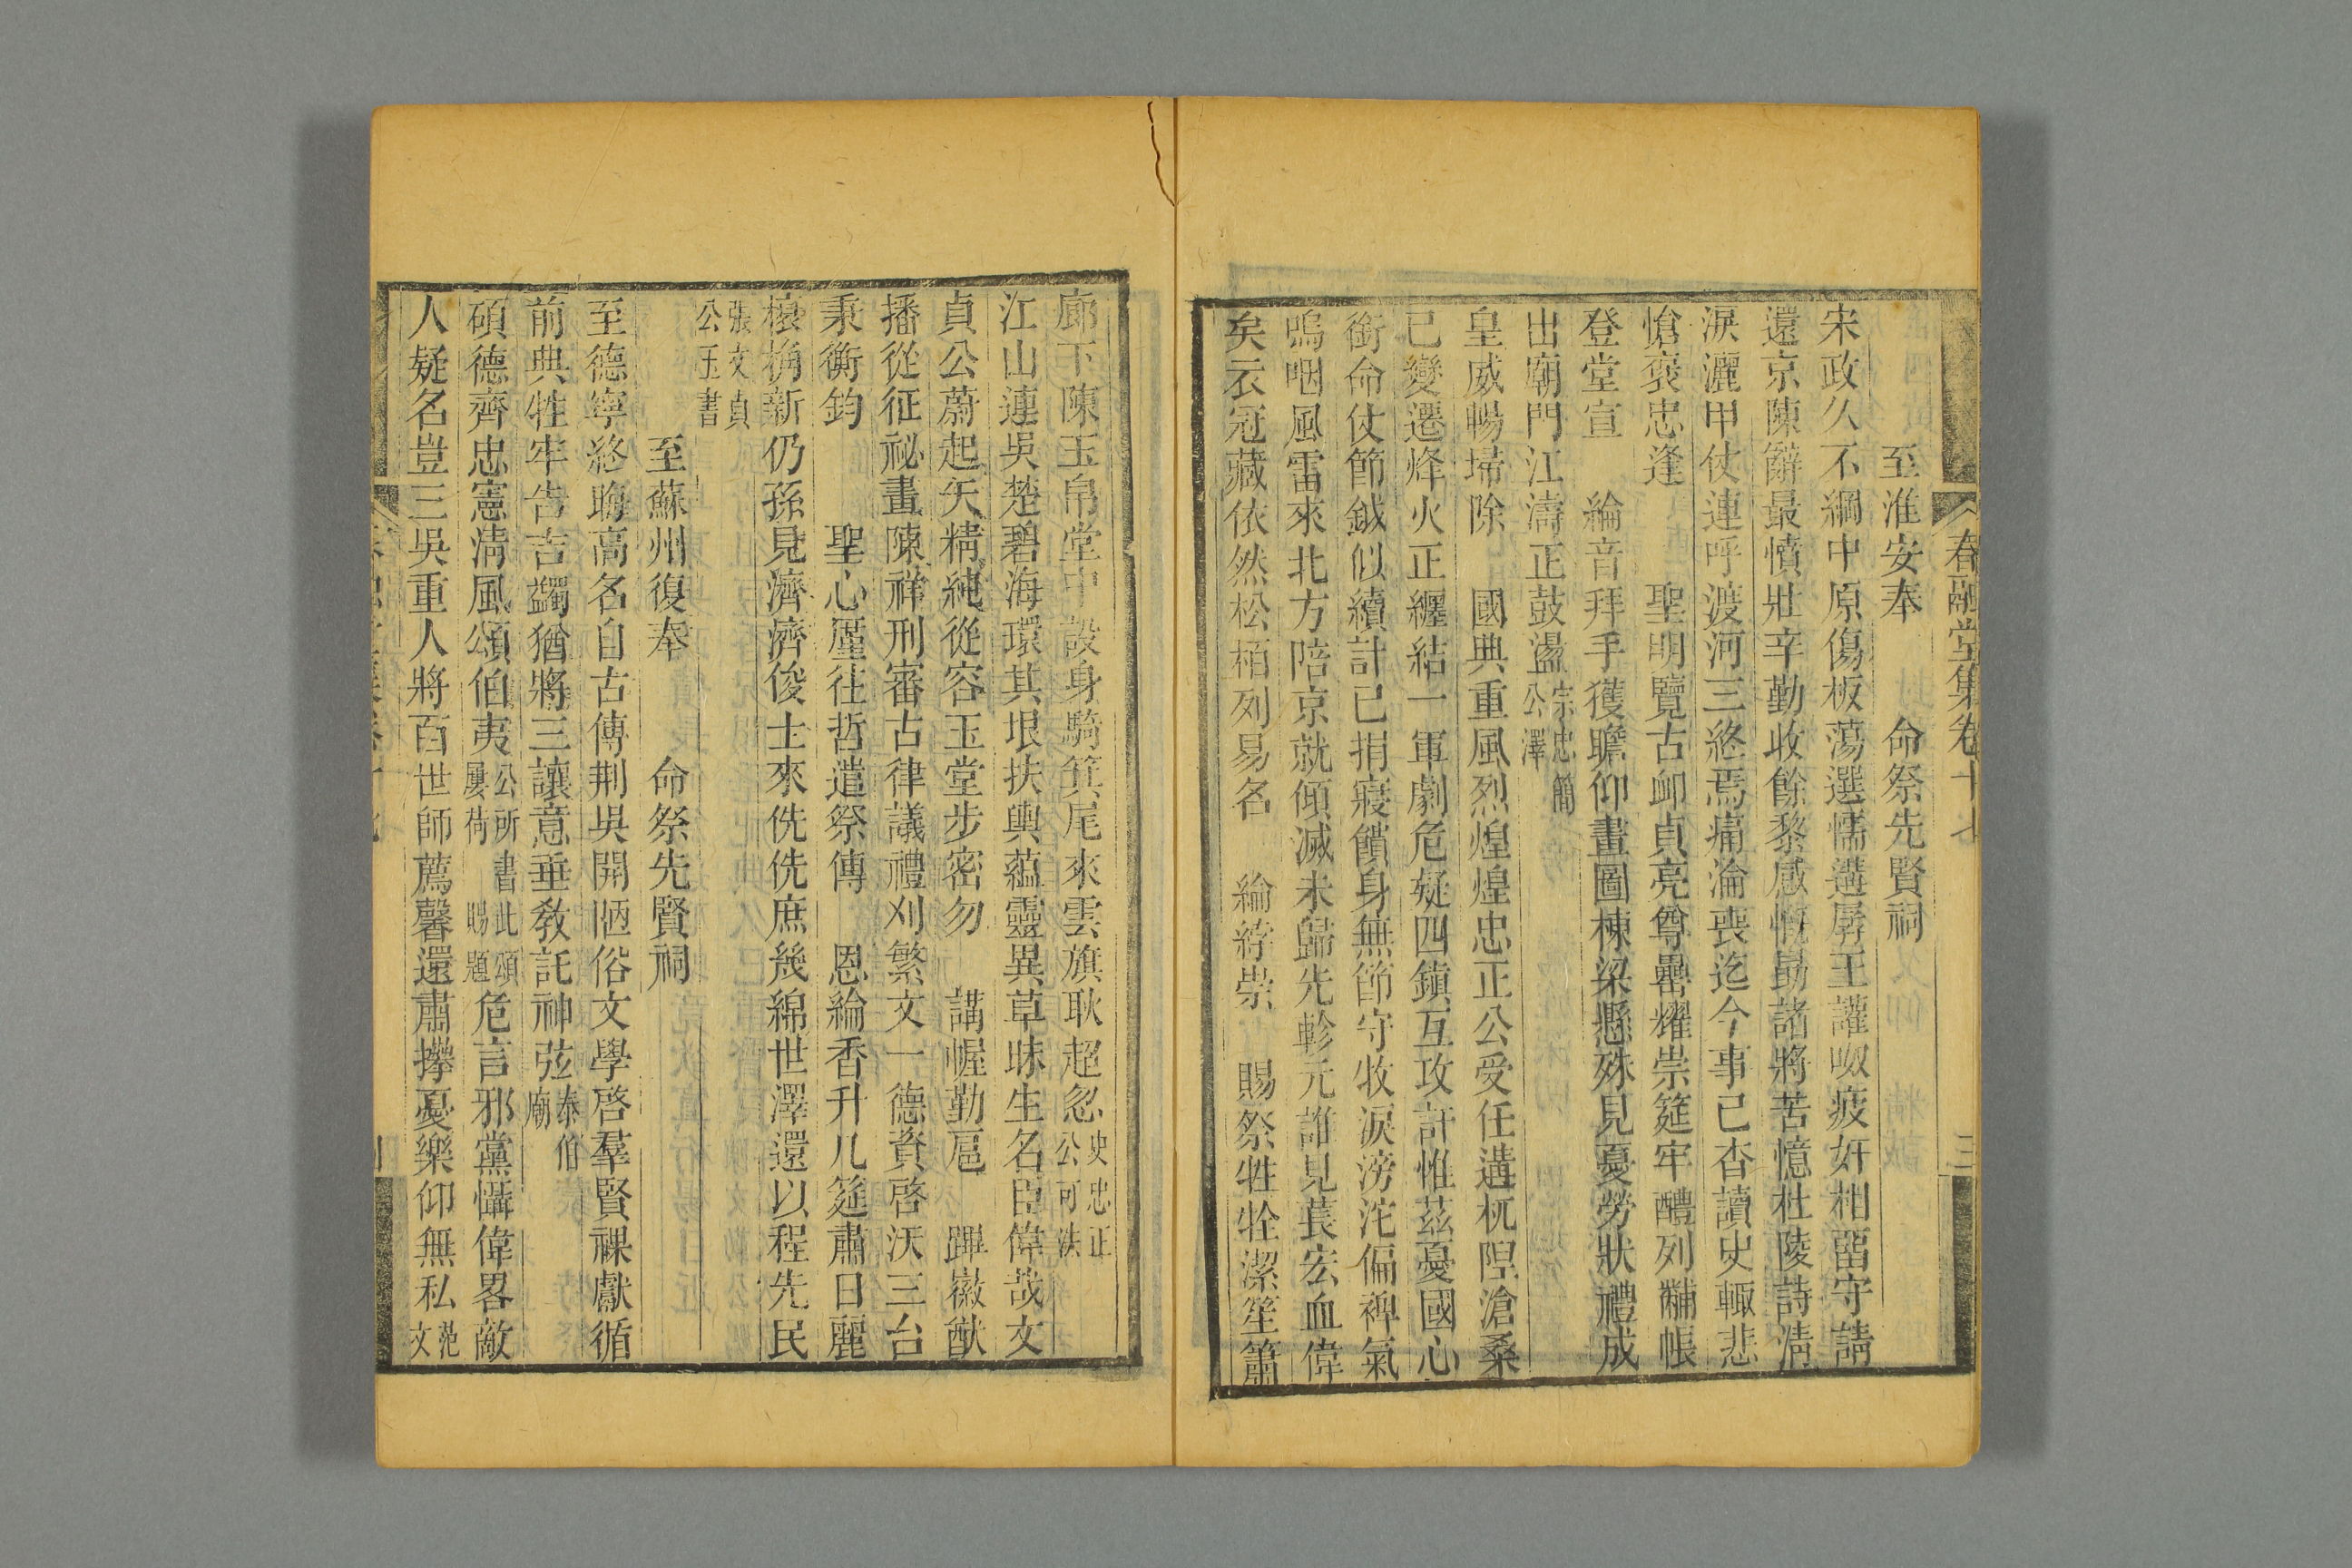 春融堂集卷十七
三
至淮安奉 命祭先賢祠
宋政久不綱中原傷板蕩選懦遘孱王讙呶疲奸相留守請
還京陳辭最憤壯辛勤收餘黎感慨勗諸將苦憶杜陵詩淸
淚灑甲仗連呼渡河三終焉痛淪喪迄今事已杳讀史輒悲
愴褒忠逢 聖明覽古卹貞亮尊罍耀崇筵牢醴列黼帳
登堂宣 綸音拜手獲瞻仰畫圖棟梁懸殊見憂勞狀禮成
出廟門江濤正鼓盪宗忠簡公澤
皇威暢埽除 國典重風烈煌煌忠正公受任遘杌隉滄桑
已變遷烽火正纏結一軍劇危疑四鎮互攻訐惟茲憂國心
銜命仗節鉞似續計已捐寢饋身無節守牧淚滂沱偏裨氣
嗚咽風雷來北方陪京就傾滅未歸先軫元誰見萇宏血偉
矣衣冠藏依然松栢列易名 綸綍崇 賜祭牲牷潔笙簫
廊下陳玉帛堂中設身騎箕尾來雲旗耿超忽史忠正公可法
江山連吳楚碧海環其垠扶輿蘊靈異草昧生名臣偉哉文
貞公蔚起矢精純從容玉堂步密勿 講幄勤扈 蹕嶽猷
播從征祕畫陳祥刑審古律議禮刈繁文一德資啓沃三台
秉衡鈞 聖心厪往哲遣祭傳 恩綸香升几筵肅日麗
榱桷新仍孫見濟濟俊士來侁侁庶幾綿世澤還以程先民
張文貞公玉書
至蘇州復奉 命祭先賢祠
至德寧終晦高名自古傳荆吳開陋俗文學啓羣賢祼獻循
前典牲牢告吉蠲猶將三讓意垂敎託神弦泰伯廟
碩德齊忠憲淸風頌伯夷公所書此頌屢荷 賜題危言邪黨懾偉畧敵
人疑名豈三吳重人將百世師薦馨還肅擧憂樂仰無私范文